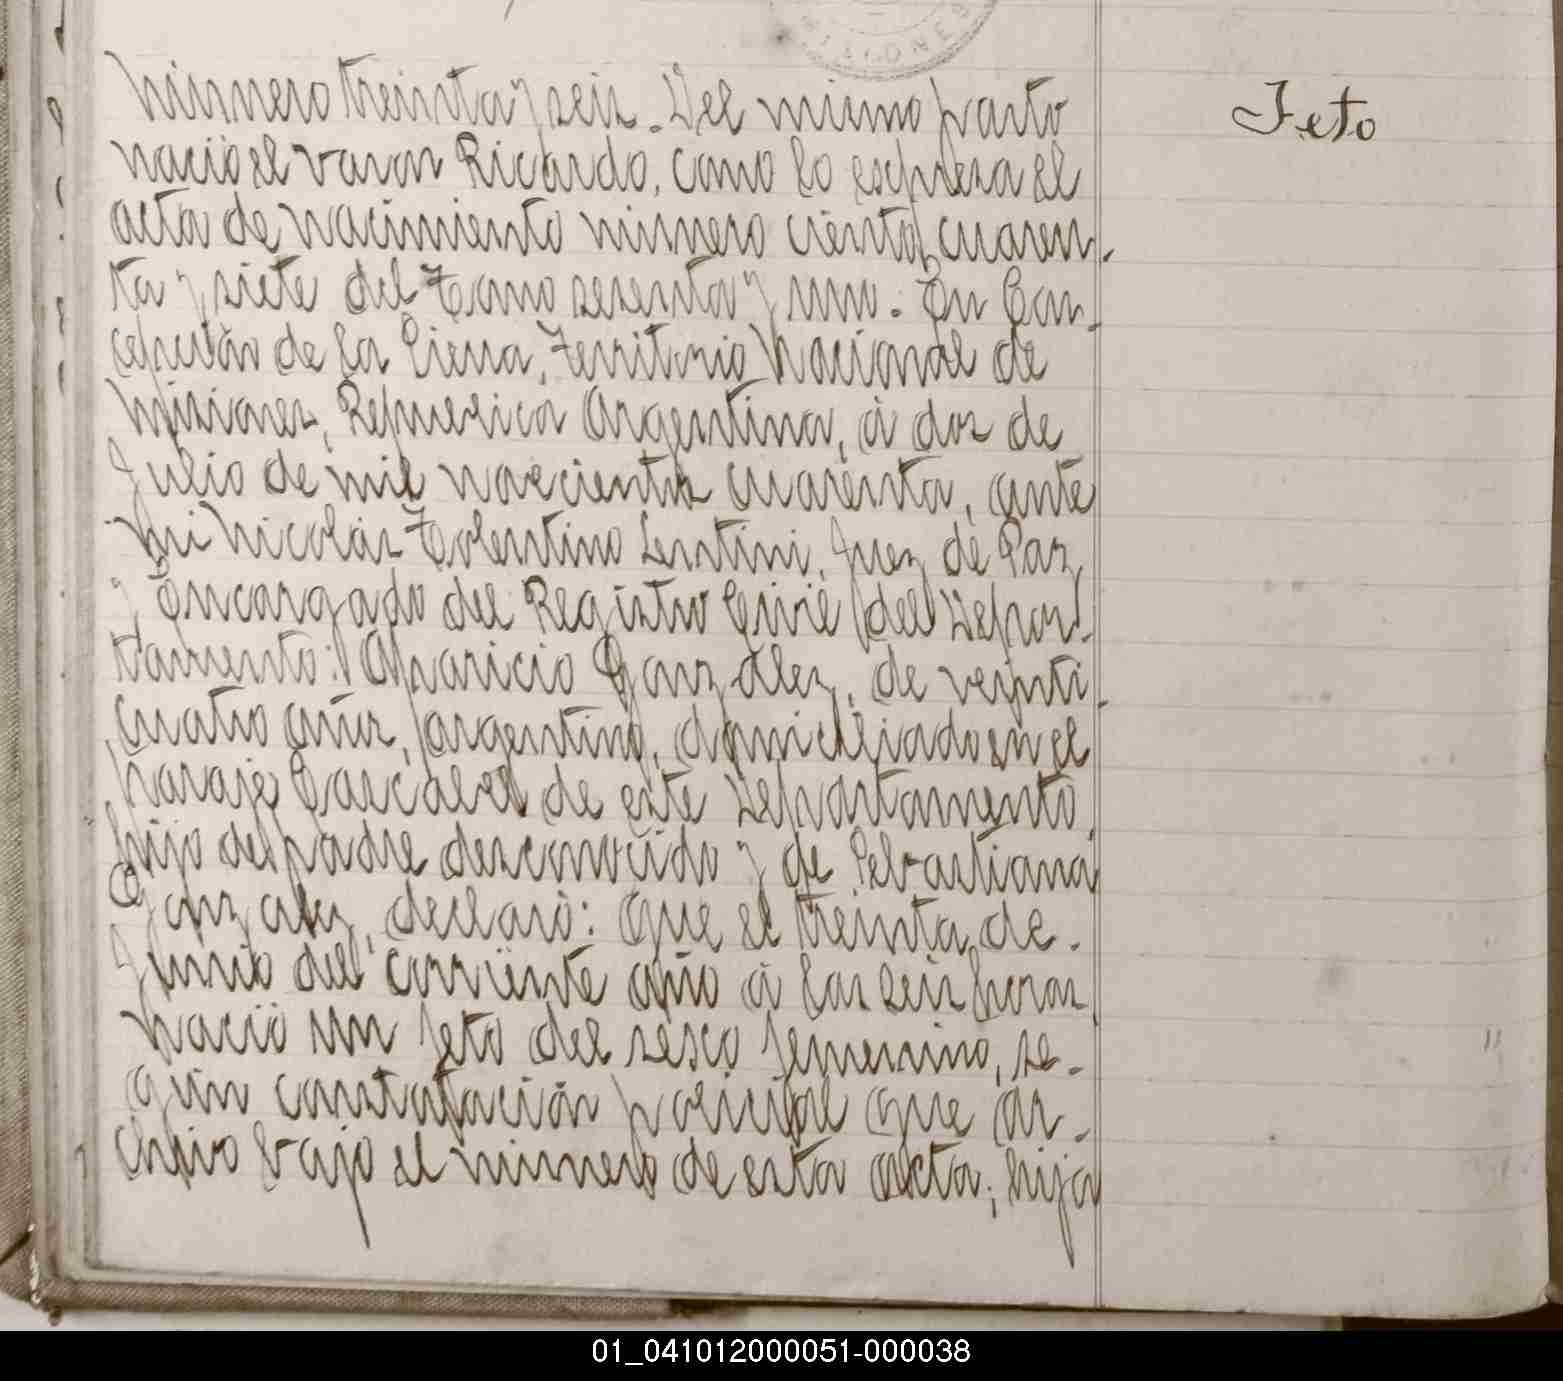 MISIONES
Número treinta y seis. Del mismo parto
nació el varon Ricardo, como lo espresa el
acta de nacimiento número ciento cuaren-
ta y siete del Tomo sesenta y uno. En Con-
cepción de la Sierra, Territorio Nacional de
Misiones, República Argentina, á dos de
Julio de mil novecientos cuarenta, ante
mi Nicolás Tolentino Lentini, Juez de Paz
y Encargado del Registro Civil del Depar-
tamento: Aparicio Gonzalez, de veinti-
cuatro años, argentino, domiciliado en el
paraje Cascabel de este Departamento,
hijo de padre desconocido y de Sebastiana
Gonzalez, declaró: Que el treinta de
Junio del corriente año á las seis horas
nació un feto del sesco femenino, se-
gún constatación policial que ar-
chivo bajo el número de esta acta; hija
Feto
01_041012000051-000038